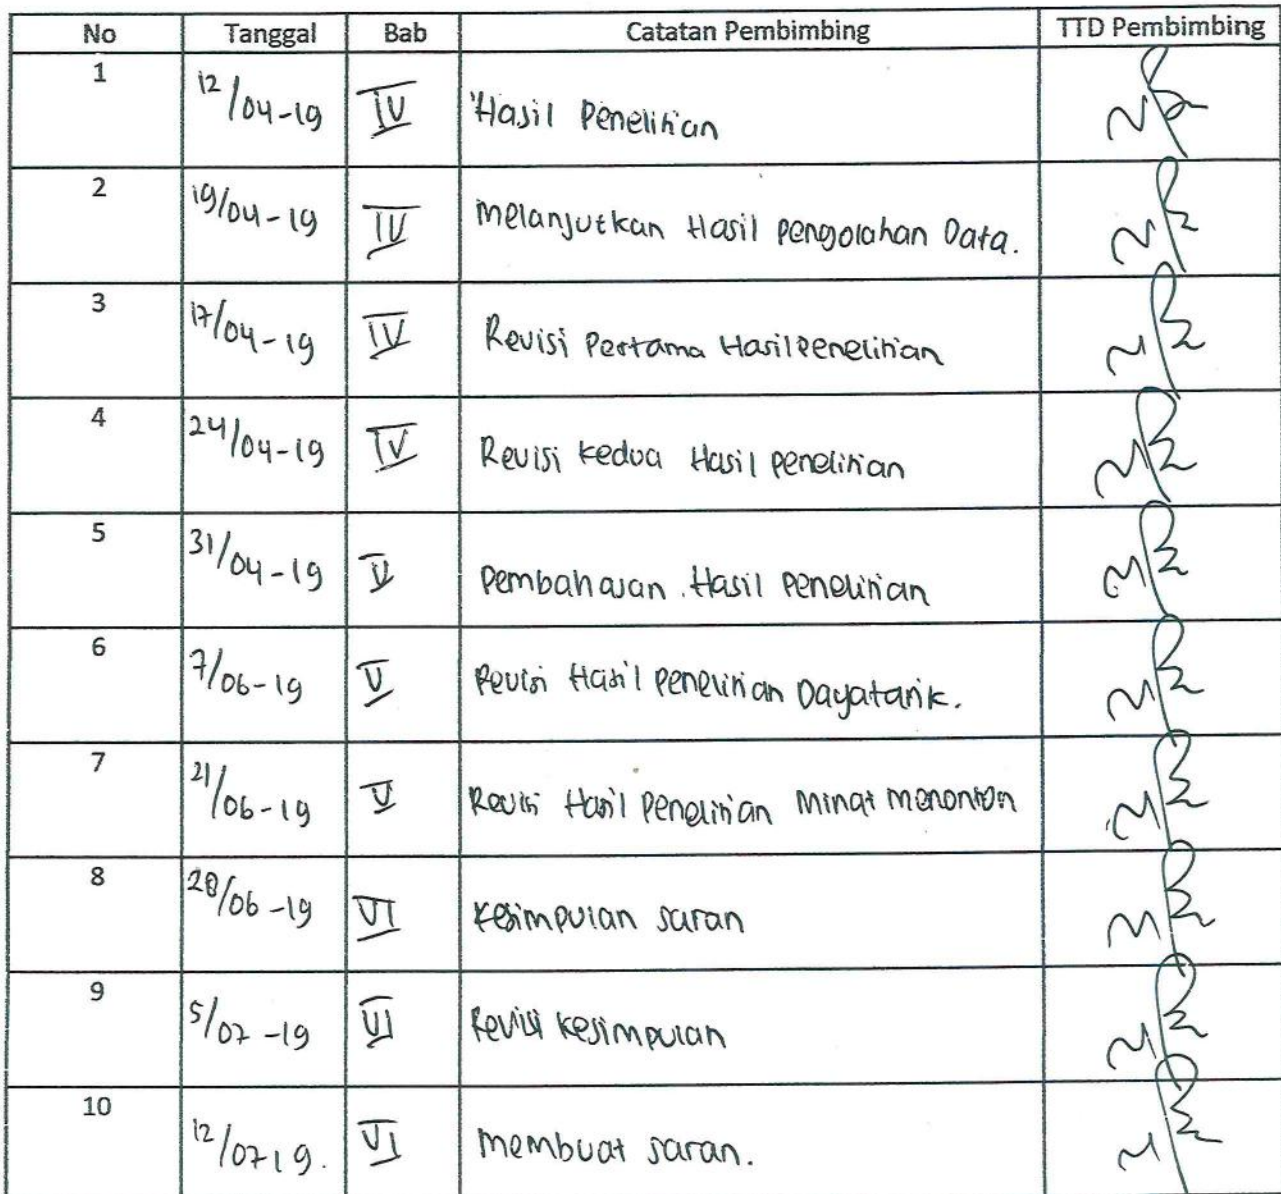 No Tanggal Bab Catatan Pembimbing TTD Pembimbing
1 12/04-19 IV Hasil Penelitian
2 19/04-19 IV Melanjutkan Hasil Pengolahan Data.
3 17/04-19 IV Revisi Pertama Hasil Penelitian
4 24/04-19 IV Revisi kedua Hasil Penelitian
5 31/04-19 V Pembahasan Hasil Penelitian
6 7/06-19 V Revisi Hasil Penelitian Dayatarik.
7 21/06-19 V Revisi Hasil Penelitian Minat Menonton
8 28/06-19 VI Kesimpulan saran
9 5/07-19 VI Revisi Kesimpulan
10 12/0719. VI Membuat saran.